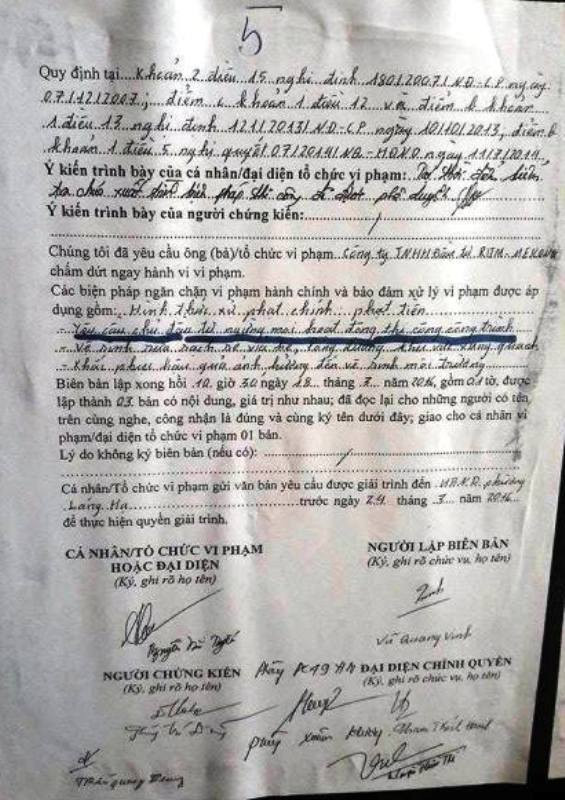 5
Quy định tại...Khoản 2 điều 15 nghị định 180/2007/NĐ-CP ngày
07/12/2007; điểm c khoản 1 điều 12 và điểm b khoản
1 điều 13 nghị định 121/2013/NĐ-CP ngày 10/10/2013, điểm b
khoản 1 điều 5 nghị quyết 07/2014/NQ-HĐND ngày 11/7/2014
Ý kiến trình bày của cá nhân/đại diện tổ chức vi phạm:
biện pháp thi công phê duyệt
Ý kiến trình bày của người chứng kiến:
Chúng tôi đã yêu cầu ông (bà)/tổ chức vi phạm...Công ty TNHH Đầu tư
chấm dứt ngay hành vi vi phạm.
Các biện pháp ngăn chặn vi phạm hành chính và bảo đảm xử lý vi phạm được áp
dụng gồm: Hình thức xử phạt chính: phạt tiền
- Yêu cầu chủ đầu tư ngừng mọi hoạt động thi công công trình
- Vệ sinh rửa sạch hè vỉa hè, lòng đường khu vực xung quanh
- Khắc phục hậu quả ảnh hưởng đến vệ sinh môi trường
Biên bản lập xong hồi 10 giờ 30 ngày 18 tháng 3 năm 2016, gồm 01 tờ, được
lập thành 03 bản có nội dung, giá trị như nhau; đã đọc lại cho những người có tên
trên cùng nghe, công nhận là đúng và cùng ký tên dưới đây; giao cho cá nhân vi
phạm/đại diện tổ chức vi phạm 01 bản.
Lý do không ký biên bản (nếu có):
Cá nhân/Tổ chức vi phạm gửi văn bản yêu cầu được giải trình đến UBND phường
Láng Hạ trước ngày 24 tháng 3 năm 2016
để thực hiện quyền giải trình.
CÁ NHÂN/TỔ CHỨC VI PHẠM
HOẶC ĐẠI DIỆN
(Ký, ghi rõ họ tên)
NGƯỜI LẬP BIÊN BẢN
(Ký, ghi rõ chức vụ, họ tên)
Vũ Quang Vinh
NGƯỜI CHỨNG KIẾN
(Ký, ghi rõ họ tên)
ĐẠI DIỆN CHÍNH QUYỀN
(Ký, ghi rõ chức vụ, họ tên)
Trần Quang